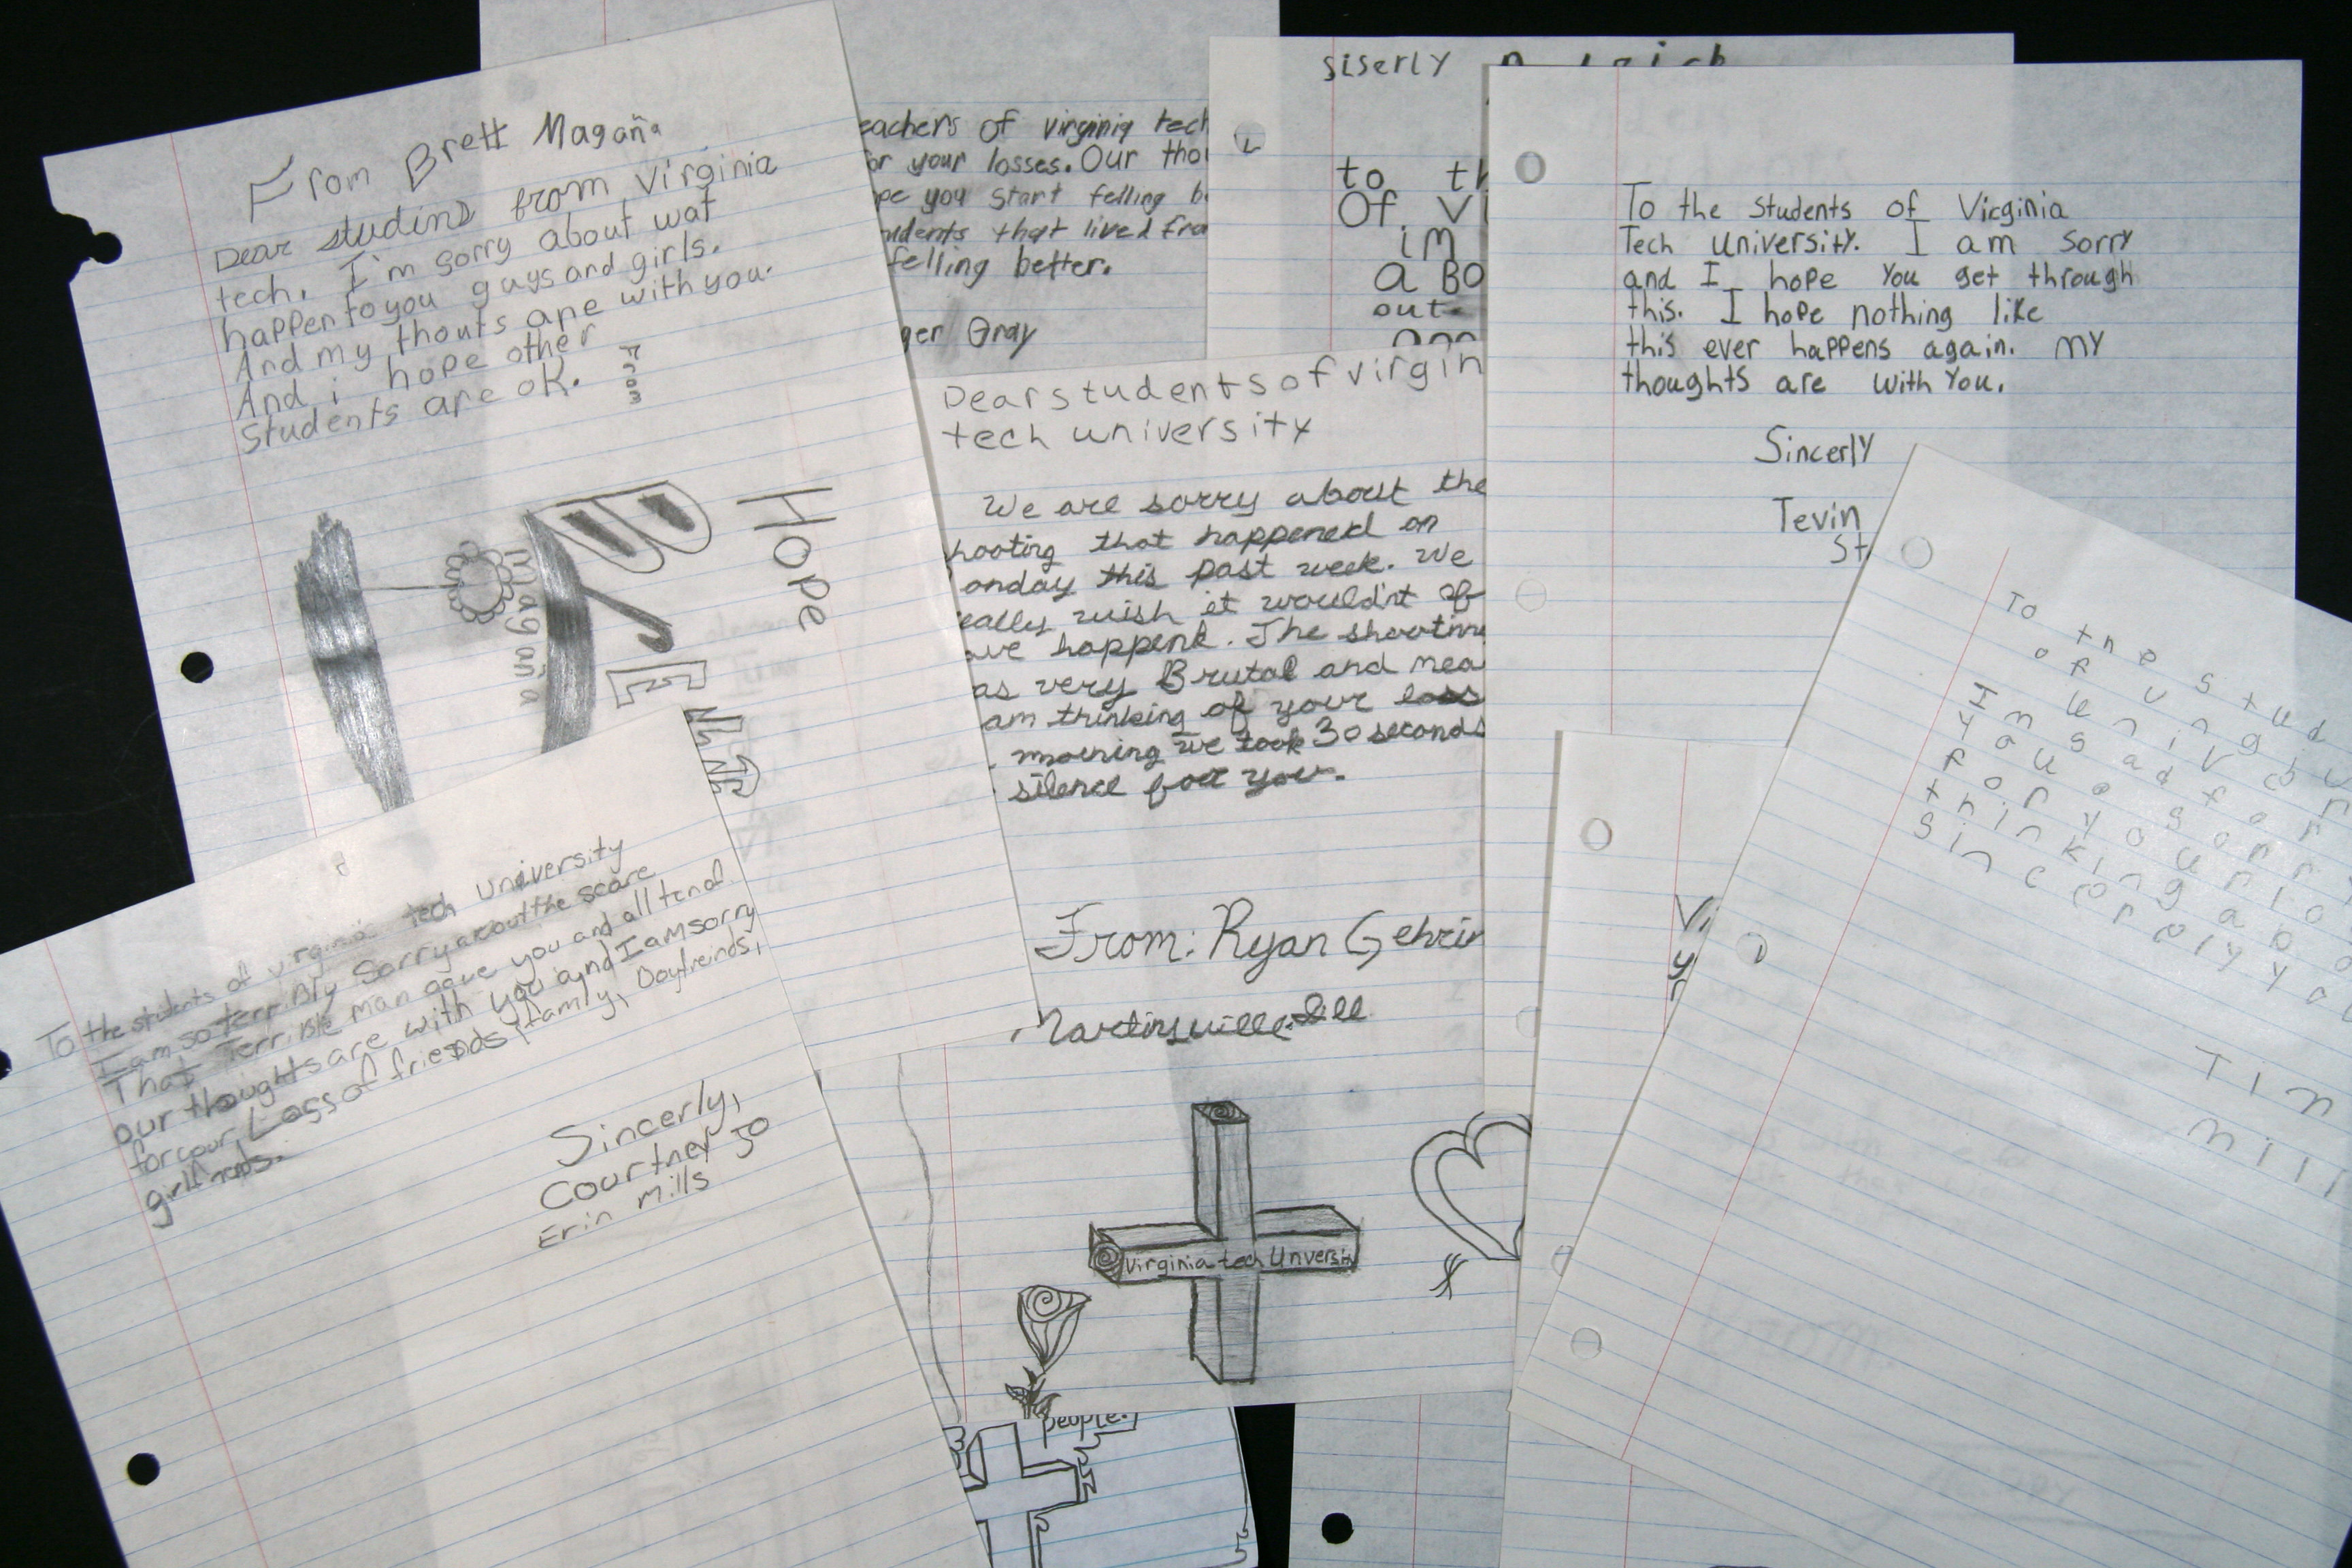 From Brett Magaña
Dear studins from Virginia
tech. I'm sorry about wat
happen to you guys and girls.
And my thouts are with you.
And i hope other
students are ok.
From
Magaña
Hope
eachers of virginia tech
or your losses. Our tho
pe you start felling b
udents that lived fro
felling better.
ger Gray
siserly
to th
Of Vi
im
a Bo
out
To the students of Virginia
Tech University. I am sorry
and I hope You get through
this. I hope nothing like
this ever happens again. MY
thoughts are with You.
Sincerly
Tevin
St
Dear students of virgin
tech university
We are sorry about the
hooting that happened on
onday this past week. We
eally wish it wouldn't of
ave happend. The shooting
as very Brutal and mea
am thinking of your loss
morning we took 30 seconds
silence for you.
From: Ryan Gehrin
Martinsville Ill
Virginia tech Unversity
people.
To the students of virginia tech University
I am so terribly Sorry about the scare
That Terrible man gave you and all
our thoughts are with you aynd I am sorry
for your Loss of friends, family, Boyfreinds,
Sincerly,
Courtney Jo
Erin Mills
Vi
To the stud
of virgi
Im sad for
You sorr
for your lo
thinking abo
Sincerely yo
Tim
Mill